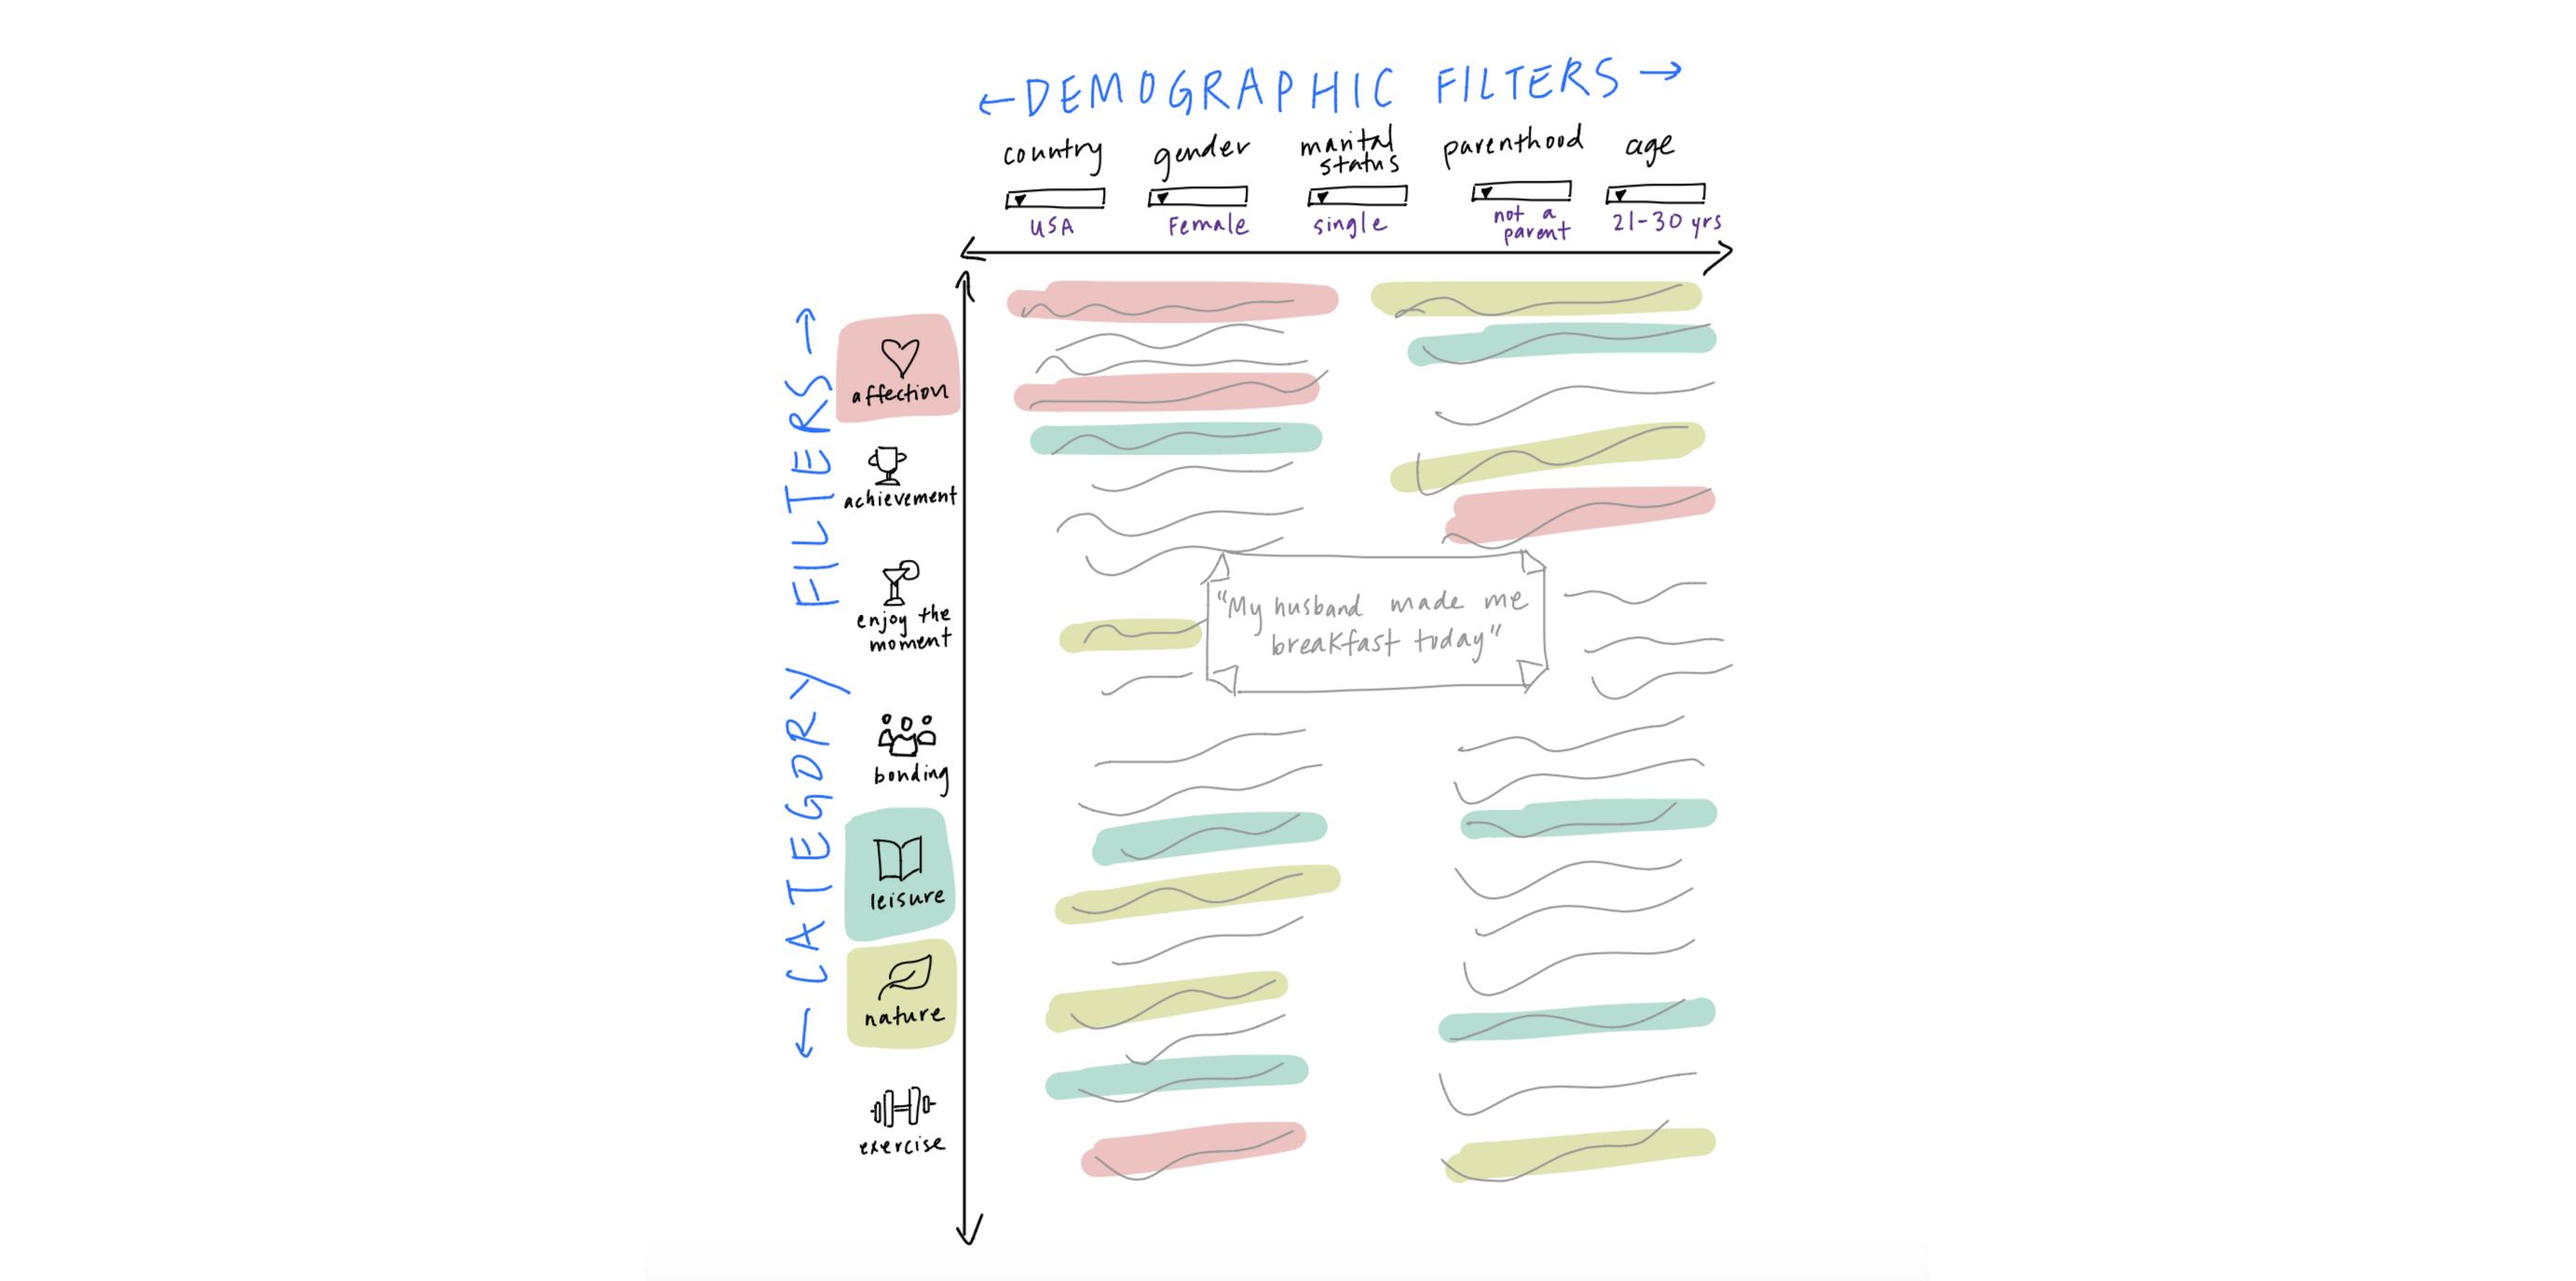 ←DEMOGRAPHIC FILTERS→
country gender marital status parenthood age
USA Female single not a parent 21-30 yrs
←CATEGORY FILTERS→
affection
achievement
enjoy the
moment
bonding
leisure
nature
exercise
"My husband made me
breakfast today"